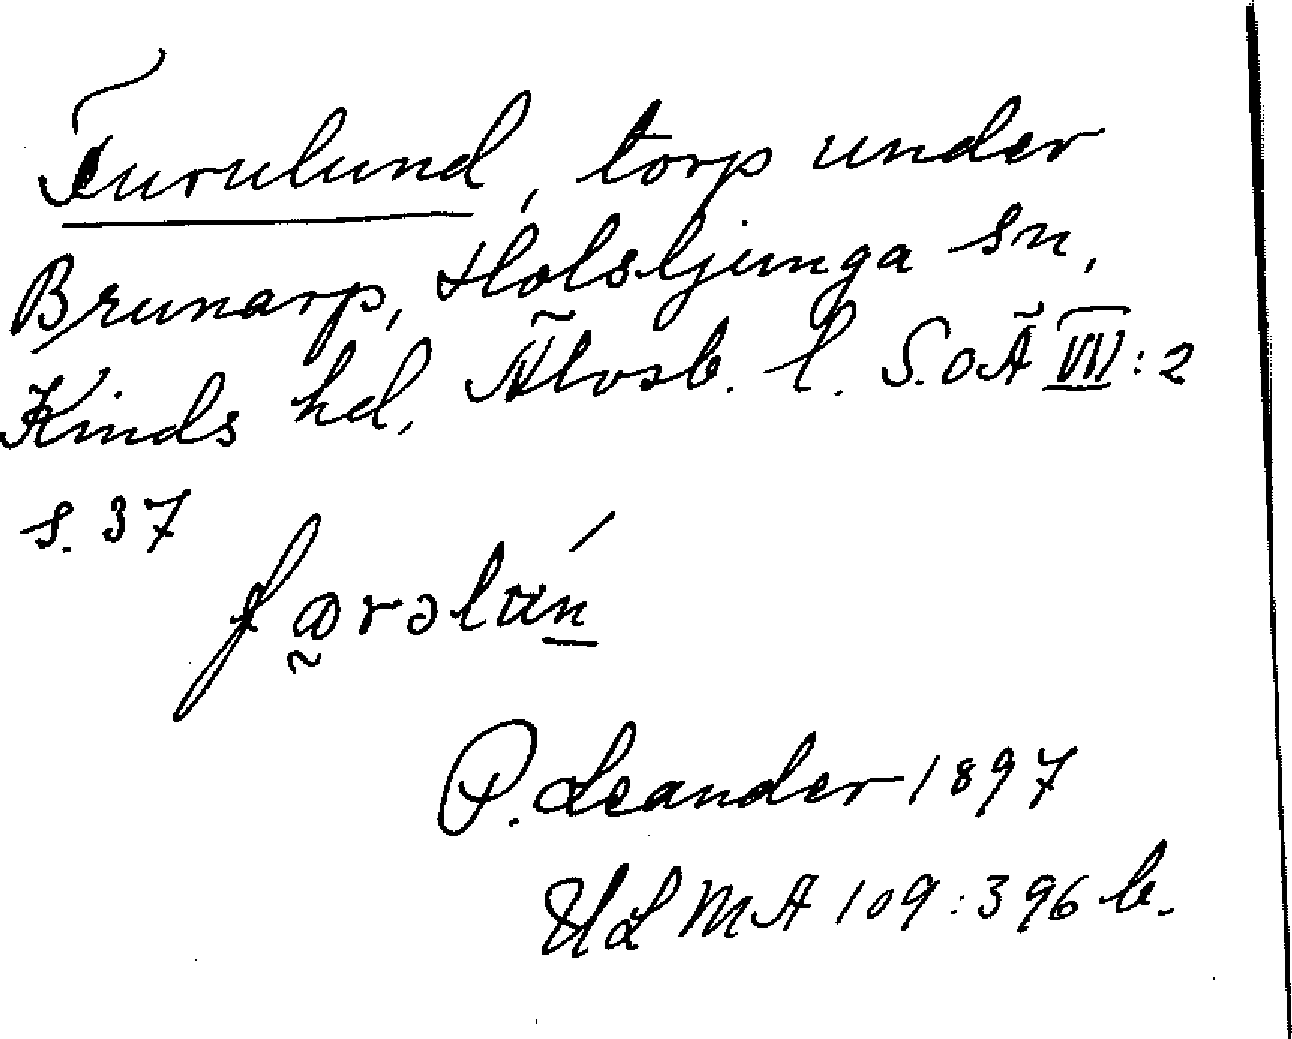 Furulund, torp under
Brunarp, Holsljunga sn,
Kinds hd, Älvsb. l. S.O.Ä VII:2
s. 37
farəlun
P. Leander 1897
ULMA 109:396 b.